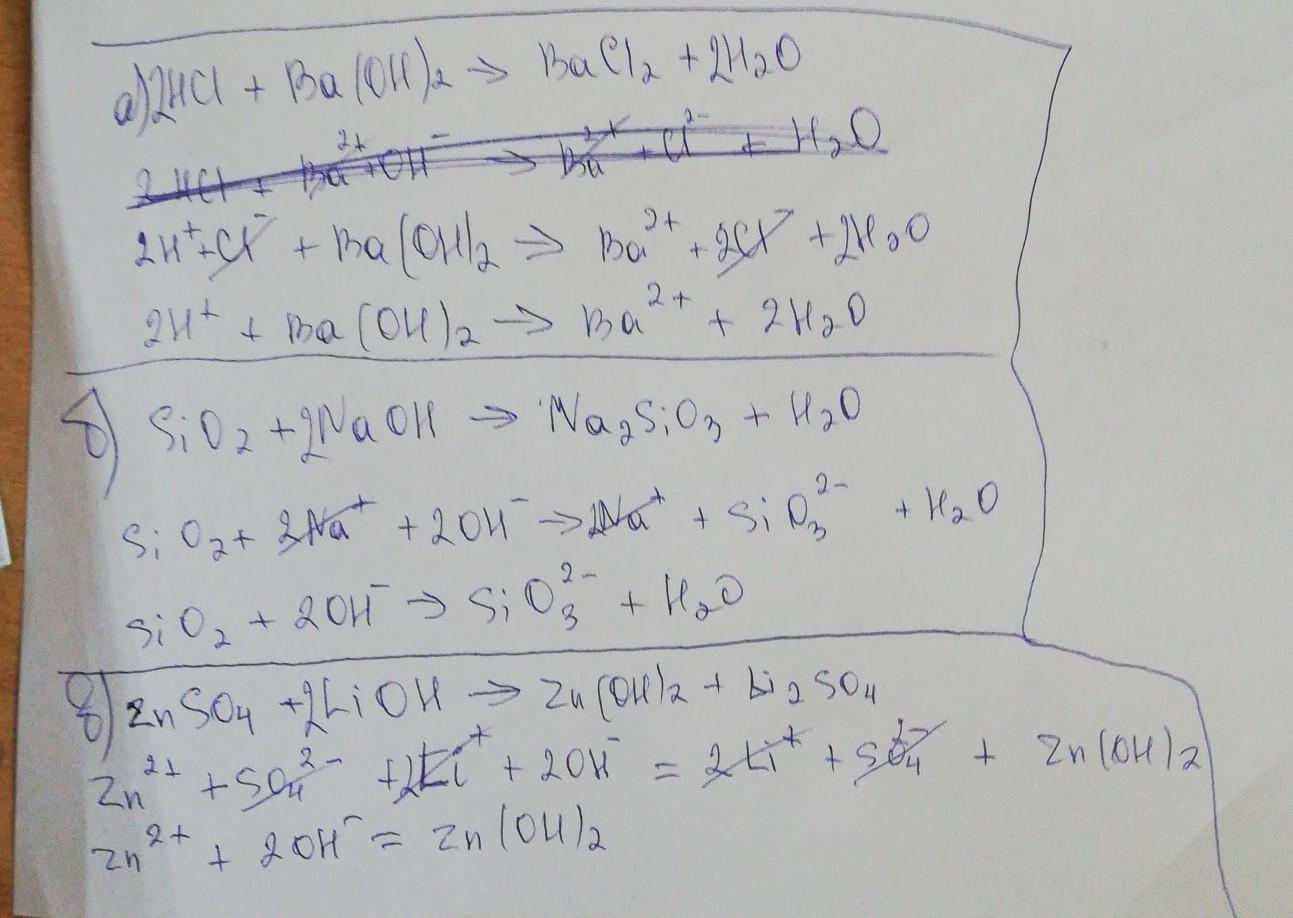 а) 2HCl + Ba(OH)2 → BaCl2 + 2H2O
2HCl + Ba^2+ + OH^- → Ba^2+ + Cl^2- + H2O
2H^+ + Cl^- + Ba(OH)2 → Ba^2+ + 2Cl^- + 2H2O
2H^+ + Ba(OH)2 → Ba^2+ + 2H2O
б) SiO2 + 2NaOH → Na2SiO3 + H2O
SiO2 + 2Na^+ + 2OH^- → 2Na^+ + SiO3^2- + H2O
SiO2 + 2OH^- → SiO3^2- + H2O
в) ZnSO4 + 2LiOH → Zn(OH)2 + Li2SO4
Zn^2+ + SO4^2- + 2Li^+ + 2OH^- = 2Li^+ + SO4^2- + Zn(OH)2
Zn^2+ + 2OH^- = Zn(OH)2